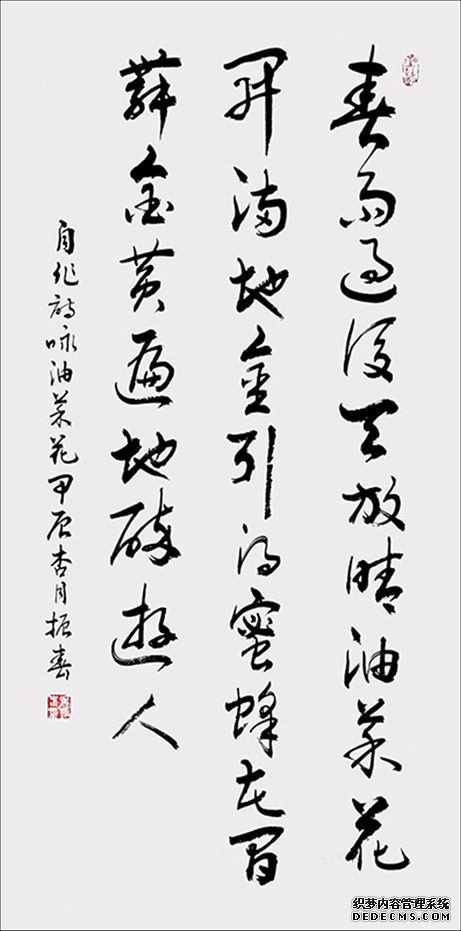 春雨過後天放晴油菜花
開滿地金引得蜜蜂花間
舞金黄遍地醉遊人
自作詩咏油菜花甲辰杏月振春
织梦内容管理系统
DEDECMS.COM